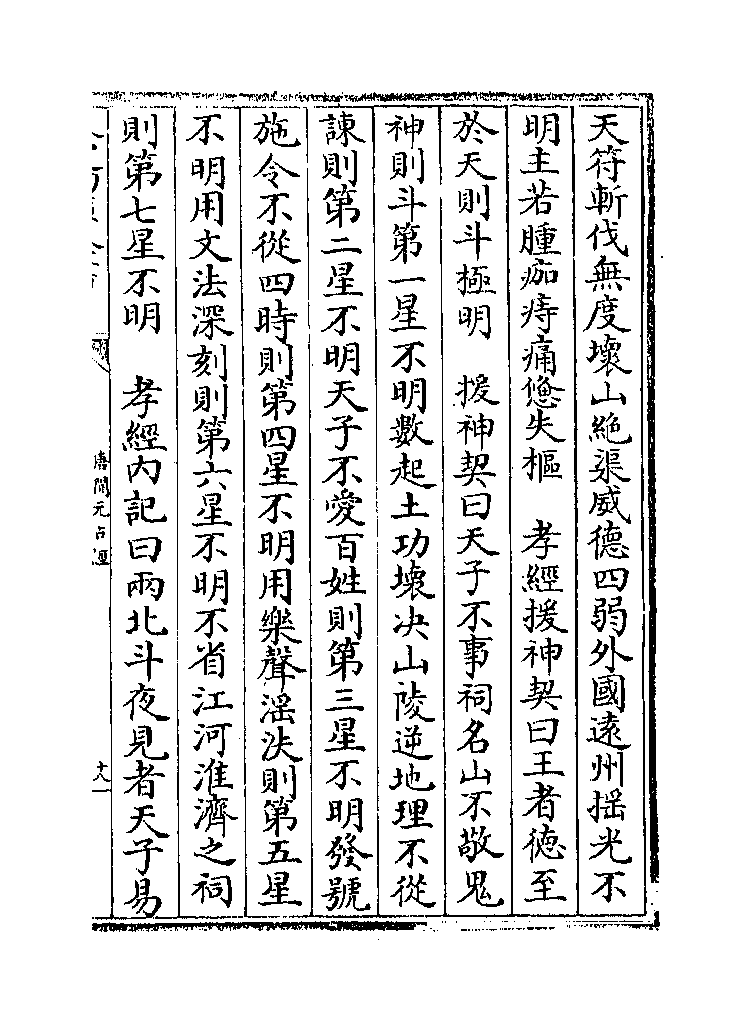 天符斬伐無度壞山絶渠威德四弱外國逺州揺光不
明主若腫痂痔痛憊失樞　孝經援神契曰王者徳至
於天則斗極明　援神契曰天子不事祠名山不敬鬼
神則斗第一星不明數起土功壊決山陵逆地理不從
諫則第二星不明天子不愛百姓則第三星不明發號
施令不從四時則第四星不明用樂聲滛泆則第五星
不明用文法深刻則第六星不明不省江河淮濟之祠
則第七星不明　孝經内記曰兩北斗夜見者天子易
唐開元占經